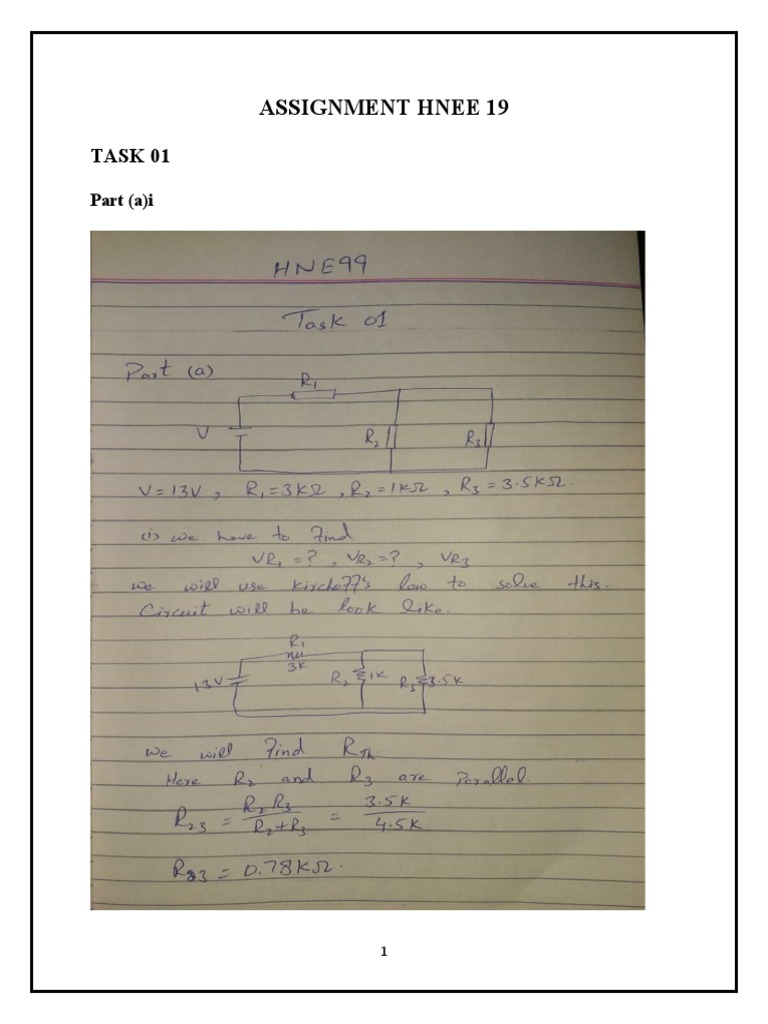 ASSIGNMENT HNEE 19
TASK 01
Part (a)i
HNE99
Task 01
Part (a)
R1
V
R2
R3
V=13V, R1=3KΩ, R2=1KΩ, R3=3.5KΩ.
(i) we have to Find
VR1=?, VR2=?, VR3
we will use kirchoff's law to solve this.
Circuit will be look like.
R1
3K
13V
R2 1K
R3 3.5K
we will Find RTh.
Here R2 and R3 are Parallel.
R23 = R2 R3 / R2+R3 = 3.5K / 4.5K
R23 = 0.78KΩ.
1